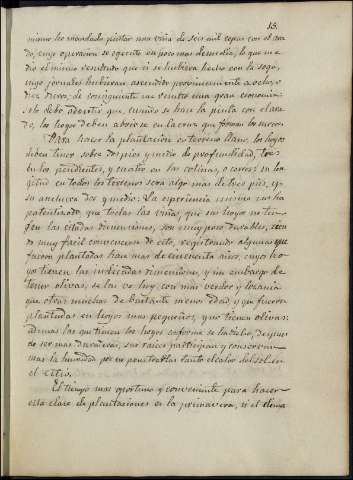 15.
mismo he mandado plantar una viña de seis mil cepas con el ara
do, cuya operacion se egecutó en poco mas de un dia, lo que me
dio el mismo resultado que si se hubiera hecho con la soga,
cuyos jornales hubieran ascendido proximamente a ocho o
diez duros, de consiguiente me resultó una gran economia:
solo debo advertir que, cuando se hace la pinta con el ara
do, los hoyos deben abrirse en la cruz que forman los surcos.
Para hacer la plantacion en terreno llano, los hoyos
deben tener sobre dos pies y medio de profundidad, tres
en los pendientes, y cuatro en las colinas, o cerros: su lon
gitud en todos los terrenos será algo mas de tres pies, y
su anchura dos y medio. La esperiencia misma nos ha
patentizado que todas las viñas, que sus hoyos no ten
gan las citadas dimensiones, son muy poco durables, sien
do muy facil convencerse de esto, registrando algunas que
fueron plantadas hace mas de cincuenta años, cuyos ho
yos tienen las indicadas dimensiones, y sin embargo de
tener olivas, se las ve hoy con mas verdor y lozanía
que otras muchas de bastante menos edad y que fueron
plantadas en hoyos mas pequeños, y no tienen olivas:
ademas las que tienen los hoyos conforme se ha dicho, despues
de ser mas duraderas, sus raices participan y conservan
mas la humedad por no penetrarlas tanto el calor del sol en
el estio.
El tiempo mas oportuno y conveniente para hacer
esta clase de plantaciones es la primavera, si el clima